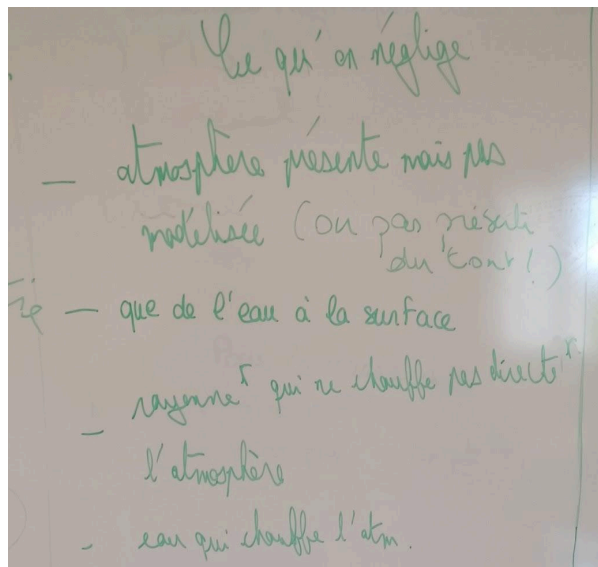 Ce qu'on néglige
— atmosphère présente mais pas
modélisée (ou pas
du tout !)
— que de l'eau à la surface
— rayonneᵗ qui ne chauffe pas directeᵗ
l'atmosphère
- eau qui chauffe l'atm.